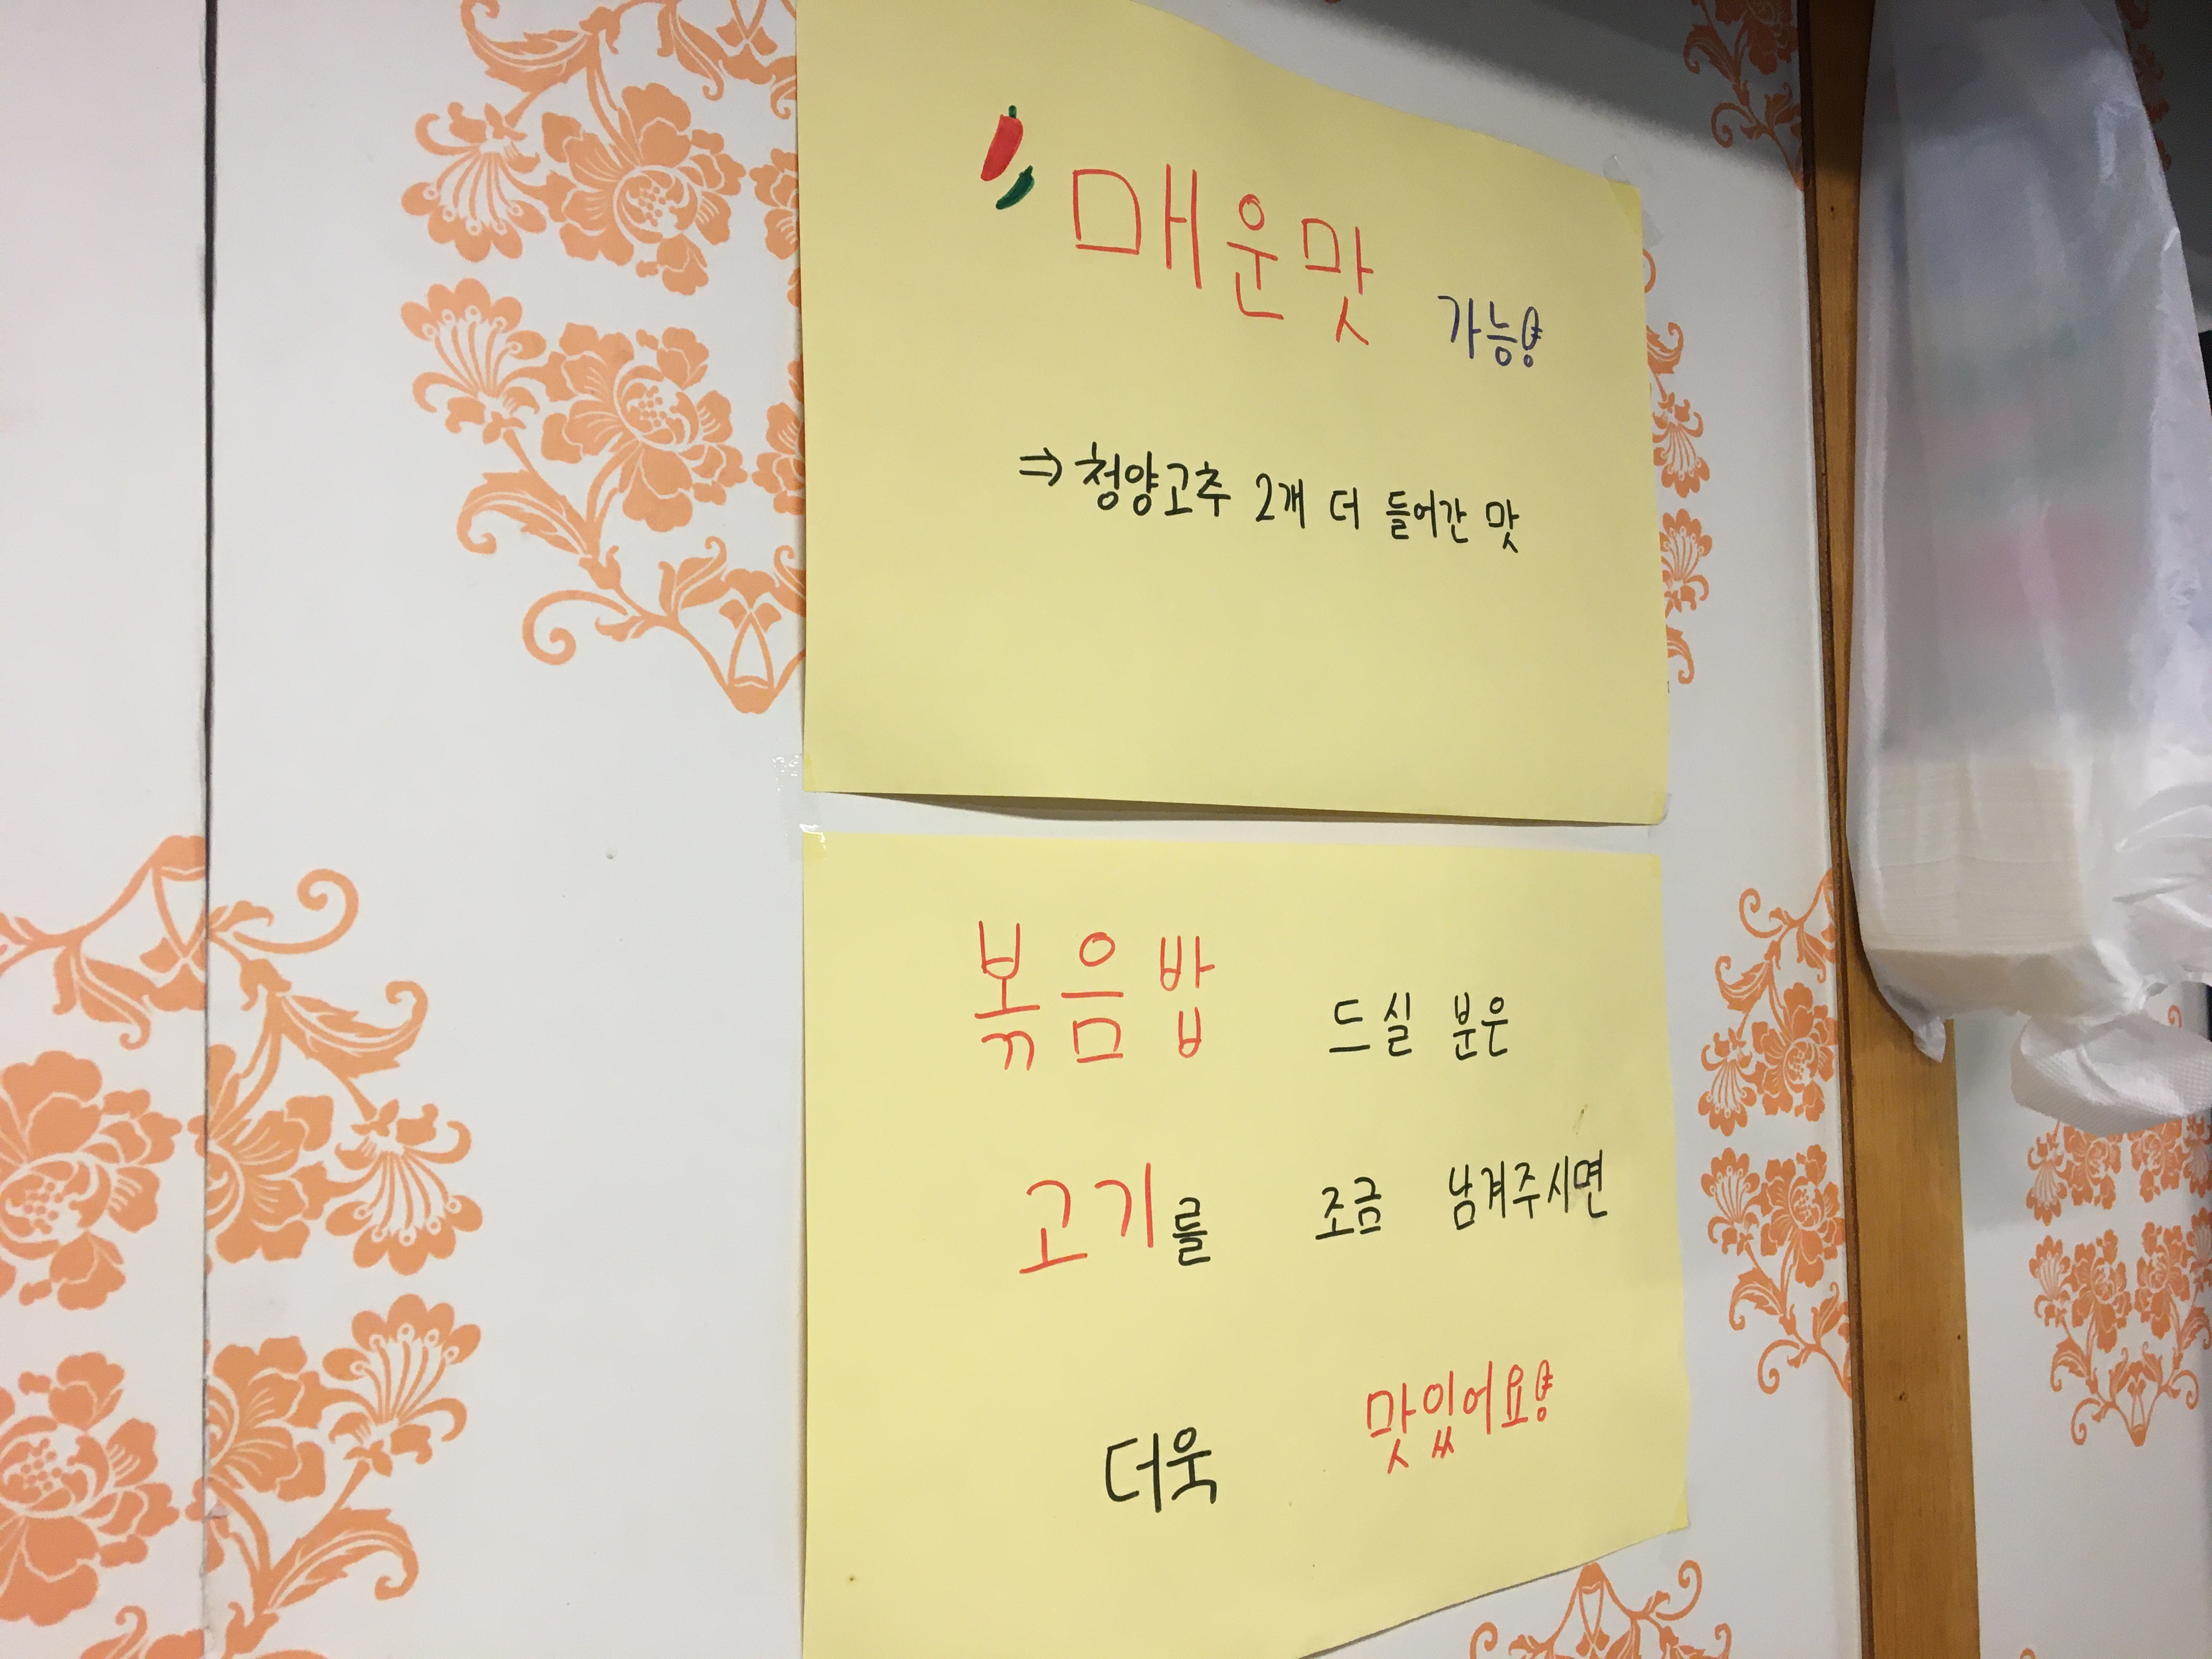 매운맛 가능양
⇒ 청양고추 2개 더 들어간 맛
볶음밥 드실 분은
고기를 조금 남겨주시면
더욱 맛있어요양